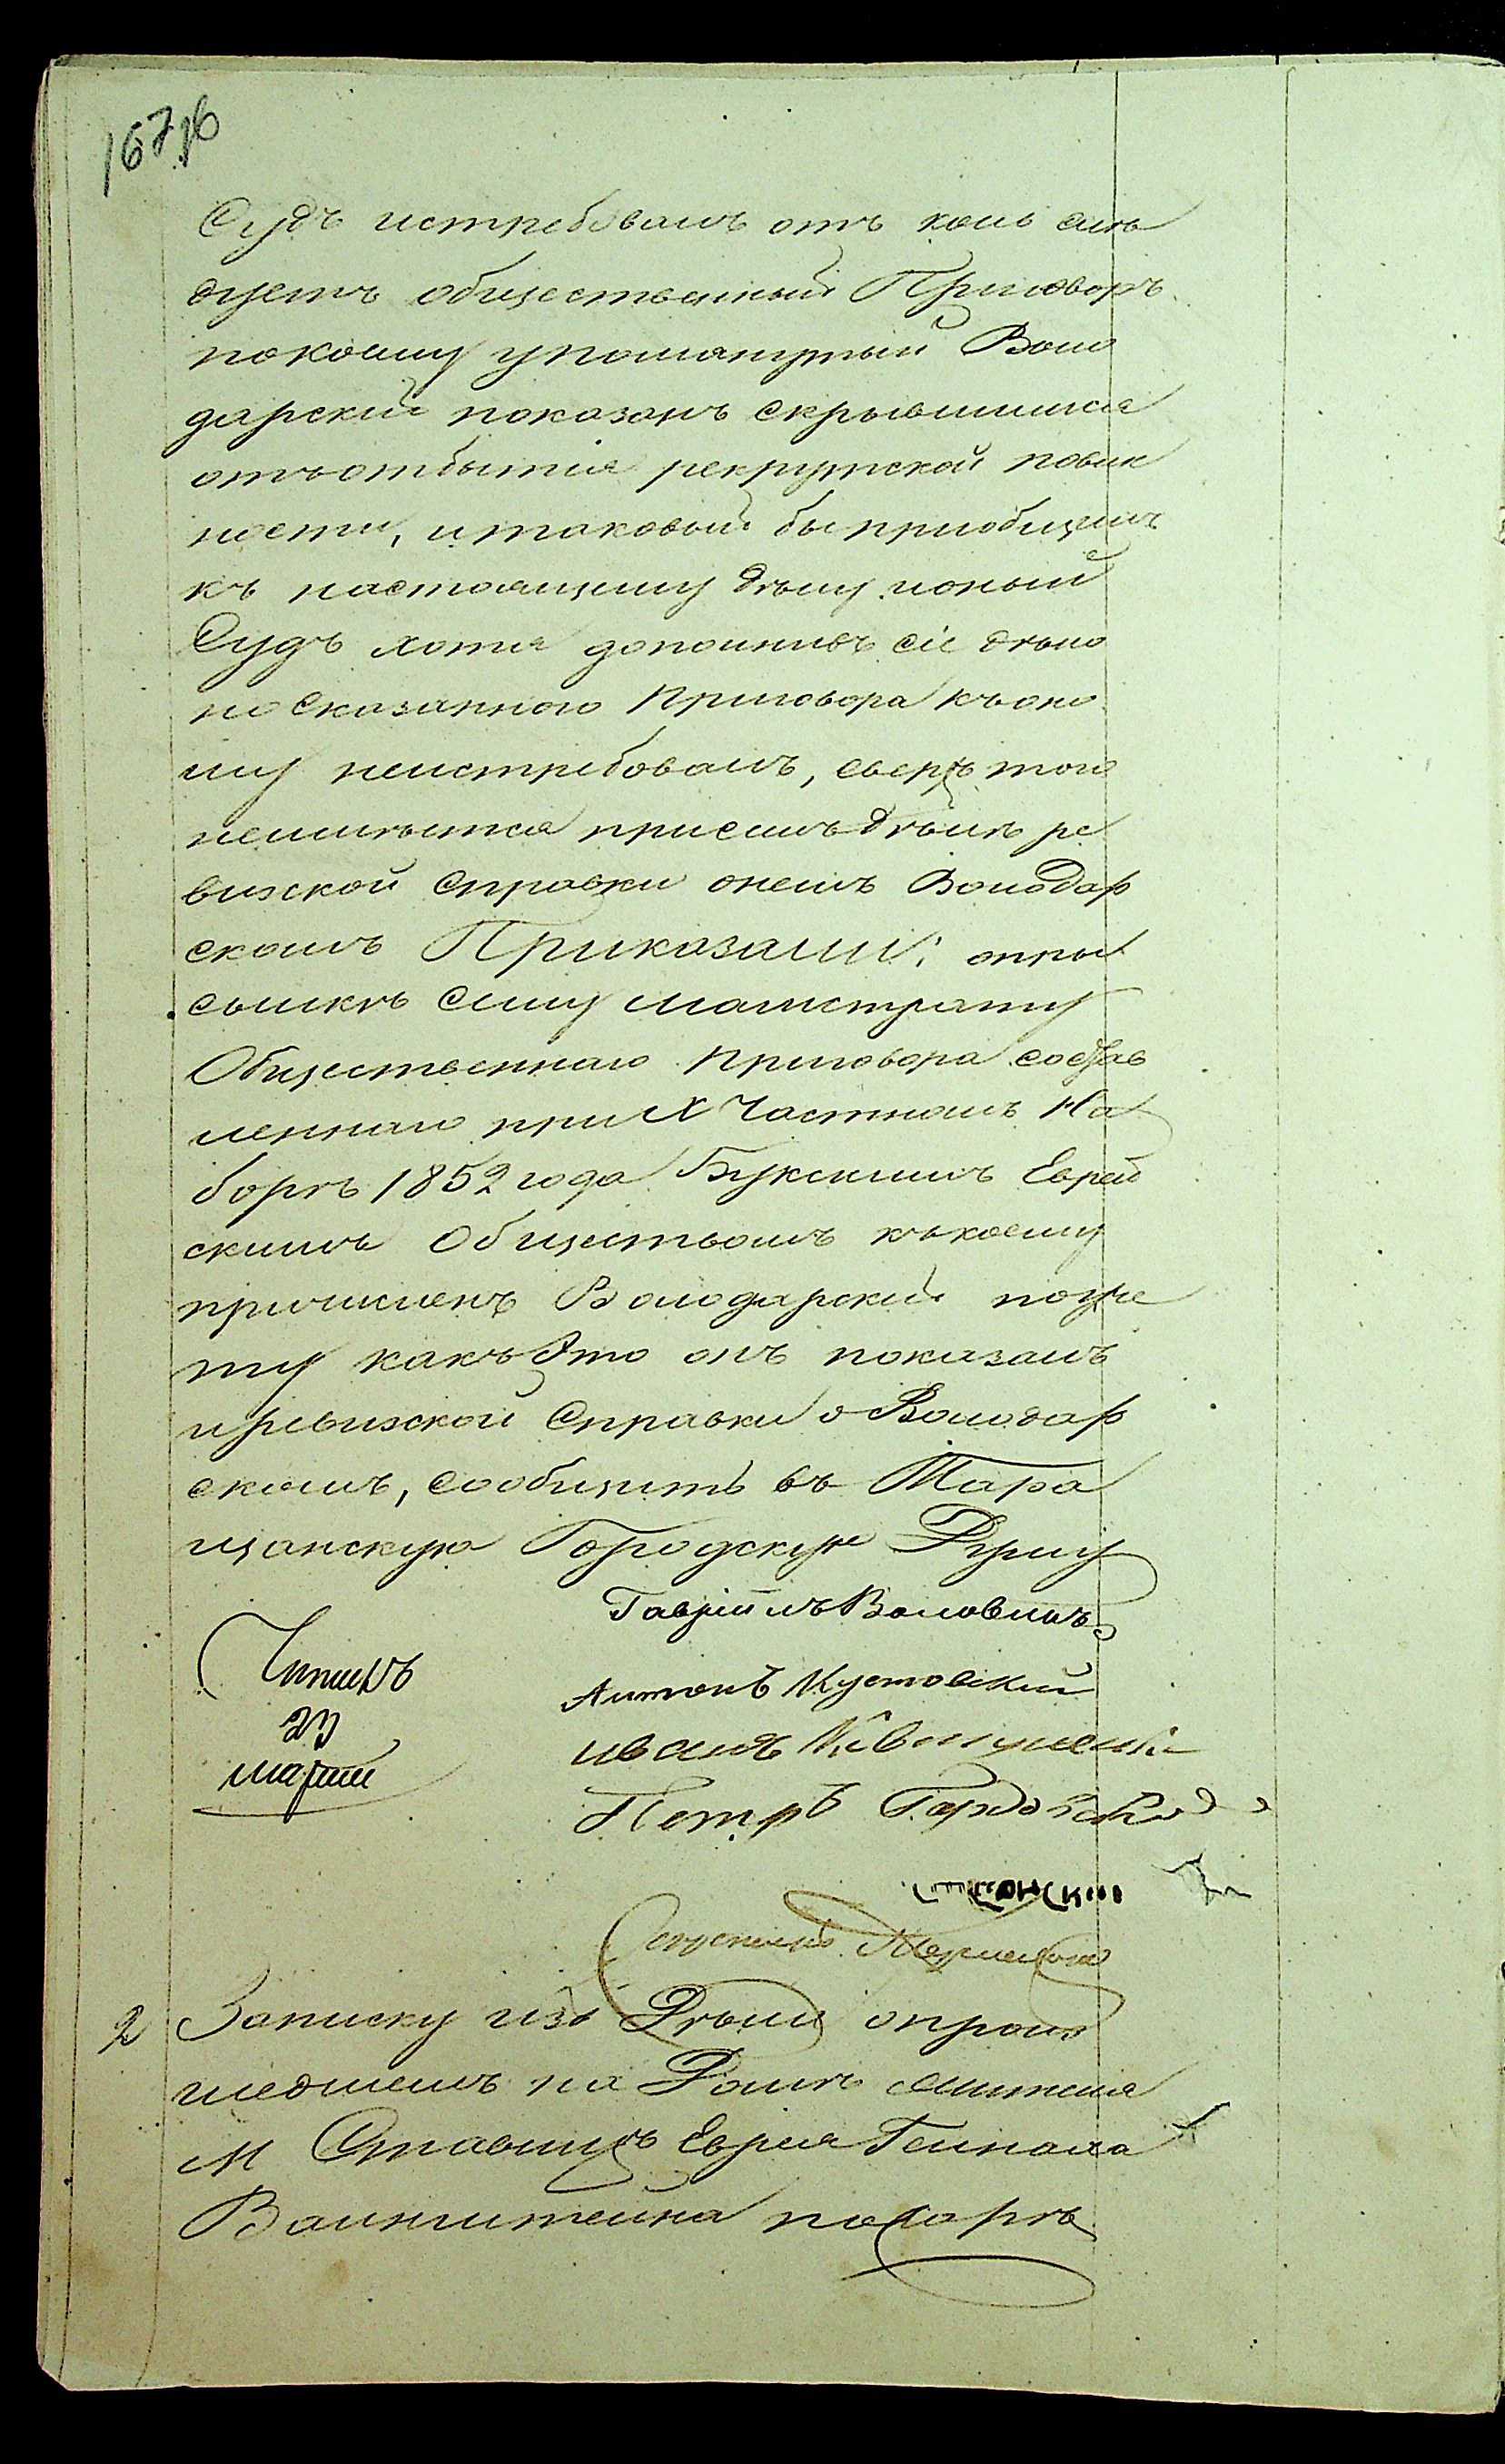 167об
Судъ истребовалъ отъ кого слѣ
дуетъ общественный Приговоръ
покоему упомянутый Воло
дарский показанъ скрывшимся
отъотбытія рекрутской повин
ности, итаковый быприобщилъ
къ настоящему дѣлу. ионый
Судъ хотя дополнивъ сіе дѣло
но Сказанного Приговора къоно
му неистребовалъ, сверхъ того
неимѣется присемъ дѣлѣ ре
визской Справки онемъ Володар
скомъ Приказали: опри
сылкѣ Сему магистрату
Общественнаго Приговора состав
леннаго при X Частномъ На
борѣ 1852 года Букскимъ Еврей
скимъ Обществомъ къкоему
причисленъ Володарский
какъ Это онъ показалъ
иревизской Справки о Володар
скомъ, сообщить въ Тара
щанскую Городскую Думу
Гавріилъ
Антонъ Кустовский
иванъ
Петръ
Читалъ
23
марта
2 Записку изъ Дѣла опроиз
шедшемъ на Домѣ жителя
М Ставищъ Еврея
Ваинштейна пожарѣ